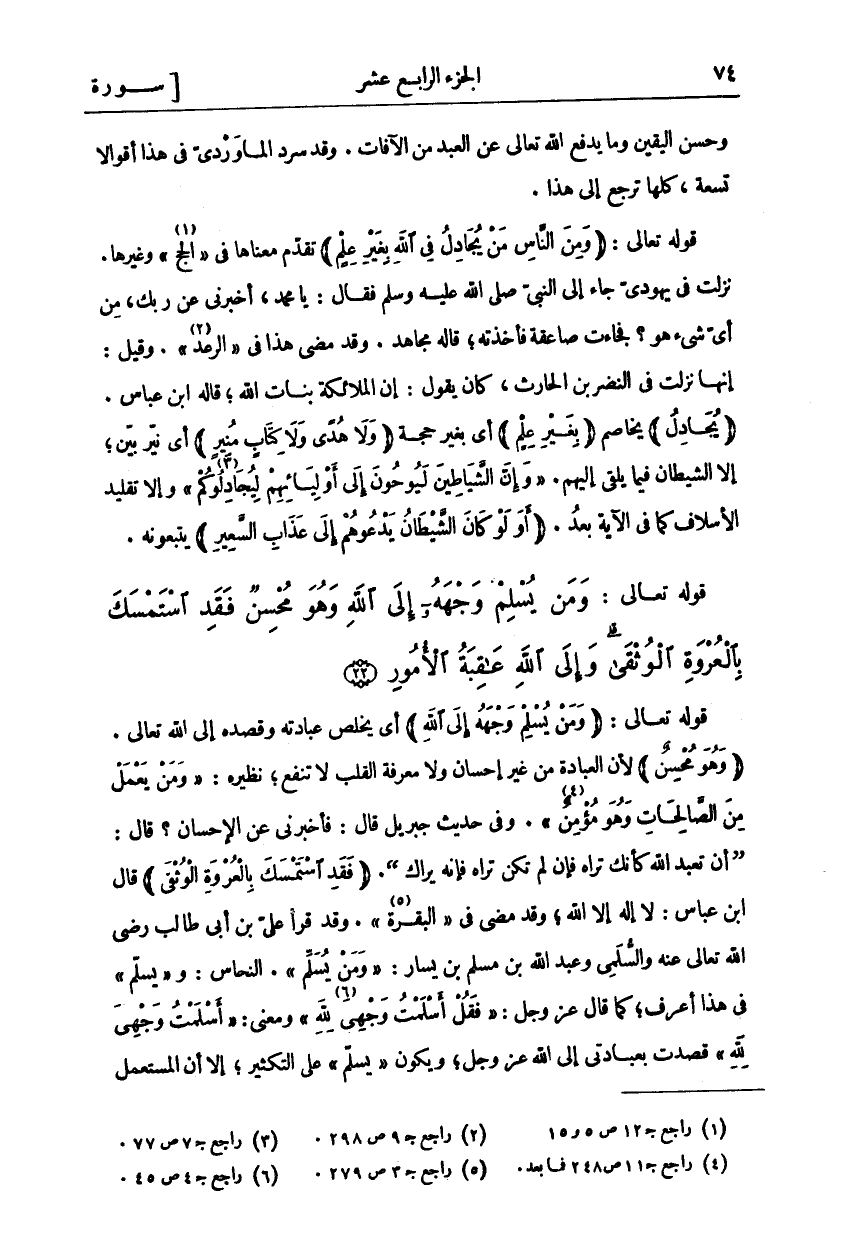 ٧٤ الجزء الرابع عشر [ سورة
وحسن اليقين وما يدفع الله تعالى عن العبد من الآفات . وقد سرد الماوَرْدىّ فى هذا أقوالا
تسعة ، كلها ترجع إلى هذا .
قوله تعالى : ﴿ وَمِنَ النَّاسِ مَنْ يُجَادِلُ فِى ٱللهِ بِغَيْرِ عِلْمٍ ﴾ تقدّم معناها فى « الحج (١) » وغيرها .
نزلت فى يهودىّ جاء إلى النبىّ صلى الله عليه وسلم فقال : يا محمد ، أخبرنى عن ربك ، مِن
أىّ شىء هو ؟ فجاءت صاعقة فأخذته ؛ قاله مجاهد . وقد مضى هذا فى « الرعد (٢) » . وقيل :
إنها نزلت فى النضر بن الحارث ، كان يقول : إن الملائكة بنات الله ؛ قاله ابن عباس .
﴿ يُجَادِلُ ﴾ يخاصم ﴿ بِغَيْرِ عِلْمٍ ﴾ أى بغير حجة ﴿ وَلَا هُدًى وَلَا كِتَابٍ مُنِيرٍ ﴾ أى نيّر بيّن ؛
إلا الشيطان فيما يلقى إليهم . « وَإِنَّ الشَّيَاطِينَ لَيُوحُونَ إِلَى أَوْلِيَائِهِمْ لِيُجَادِلُوكُمْ (٣) » وإلا تقليد
الأسلاف كما فى الآية بعدُ . ﴿ أَوَ لَوْ كَانَ الشَّيْطَانُ يَدْعُوهُمْ إِلَى عَذَابِ السَّعِيرِ ﴾ يتبعونه .
قوله تعالى : وَمَن يُسْلِمْ وَجْهَهُۥٓ إِلَى ٱللَّهِ وَهُوَ مُحْسِنٌ فَقَدِ ٱسْتَمْسَكَ
بِٱلْعُرْوَةِ ٱلْوُثْقَىٰ ۗ وَإِلَى ٱللَّهِ عَـٰقِبَةُ ٱلْأُمُورِ ﴿٢٢﴾
قوله تعالى : ﴿ وَمَنْ يُسْلِمْ وَجْهَهُ إِلَى ٱللهِ ﴾ أى يخلص عبادته وقصده إلى الله تعالى .
﴿ وَهُوَ مُحْسِنٌ ﴾ لأن العبادة من غير إحسان ولا معرفة القلب لا تنفع ؛ نظيره : « وَمَنْ يَعْمَلْ
مِنَ الصَّالِحَاتِ وَهُوَ مُؤْمِنٌ (٤) » . وفى حديث جبريل قال : فأخبرنى عن الإحسان ؟ قال :
”أن تعبد الله كأنك تراه فإن لم تكن تراه فإنه يراك“ . ﴿ فَقَدِ ٱسْتَمْسَكَ بِالْعُرْوَةِ الْوُثْقَى ﴾ قال
ابن عباس : لا إله إلا الله ؛ وقد مضى فى « البقرة (٥) » . وقد قرأ علىّ بن أبى طالب رضى
الله تعالى عنه والسُّلَمِى وعبد الله بن مسلم بن يسار : « وَمَنْ يُسَلِّم » . النحاس : و « يسلّم »
فى هذا أعرف ؛ كما قال عز وجل : « فَقُلْ أَسْلَمْتُ وَجْهِىَ لِلهِ (٦) » ومعنى : « أَسْلَمْتُ وَجْهِىَ
لِلهِ » قصدت بعبادتى إلى الله عز وجل ؛ ويكون « يسلّم » على التكثير ؛ إلا أن المستعمل
(١) راجع جـ ١٢ ص ٥ و ١٥ (٢) راجع جـ ٩ ص ٢٩٨ . (٣) راجع جـ ٧ ص ٧٧ .
(٤) راجع جـ ١١ ص ٢٤٨ فما بعد . (٥) راجع جـ ٣ ص ٢٧٩ . (٦) راجع جـ ٤ ص ٤٥ .